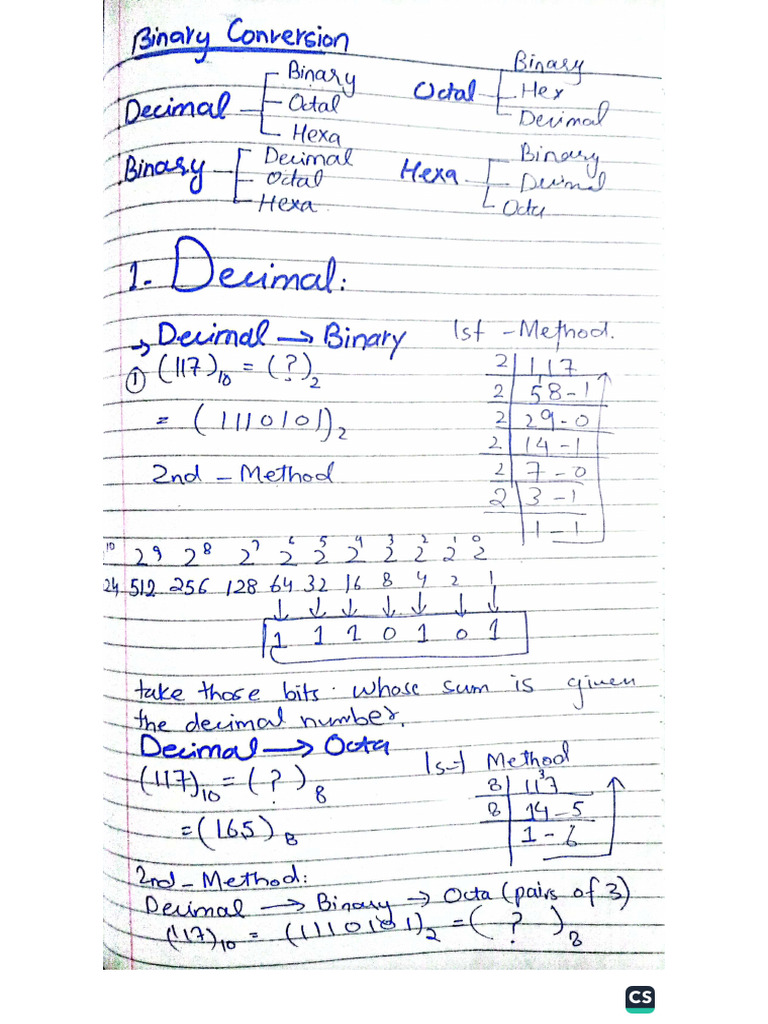 Binary Conversion
Decimal Binary Octal Hexa
Octal Binary Hex Decimal
Binary Decimal Octal Hexa
Hexa Binary Decimal Octa
1- Decimal:
→ Decimal → Binary
1st - Method.
① (117)10 = (?)2
= (1110101)2
2 | 117
2 | 58 - 1
2 | 29 - 0
2 | 14 - 1
2 | 7 - 0
2 | 3 - 1
1 - 1
2nd - Method
10 2^9 2^8 2^7 2^6 2^5 2^4 2^3 2^2 2^1 2^0
24 512 256 128 64 32 16 8 4 2 1
↓ ↓ ↓ ↓ ↓ ↓
1 1 1 0 1 0 1
take those bits whose sum is given
the decimal number.
Decimal → Octa
1st Method
(117)10 = (?)8
= (165)8
8 | 117
8 | 14 - 5
1 - 6
2nd - Method:
Decimal → Binary → Octa (pairs of 3)
(117)10 = (1110101)2 = (?)8
CS